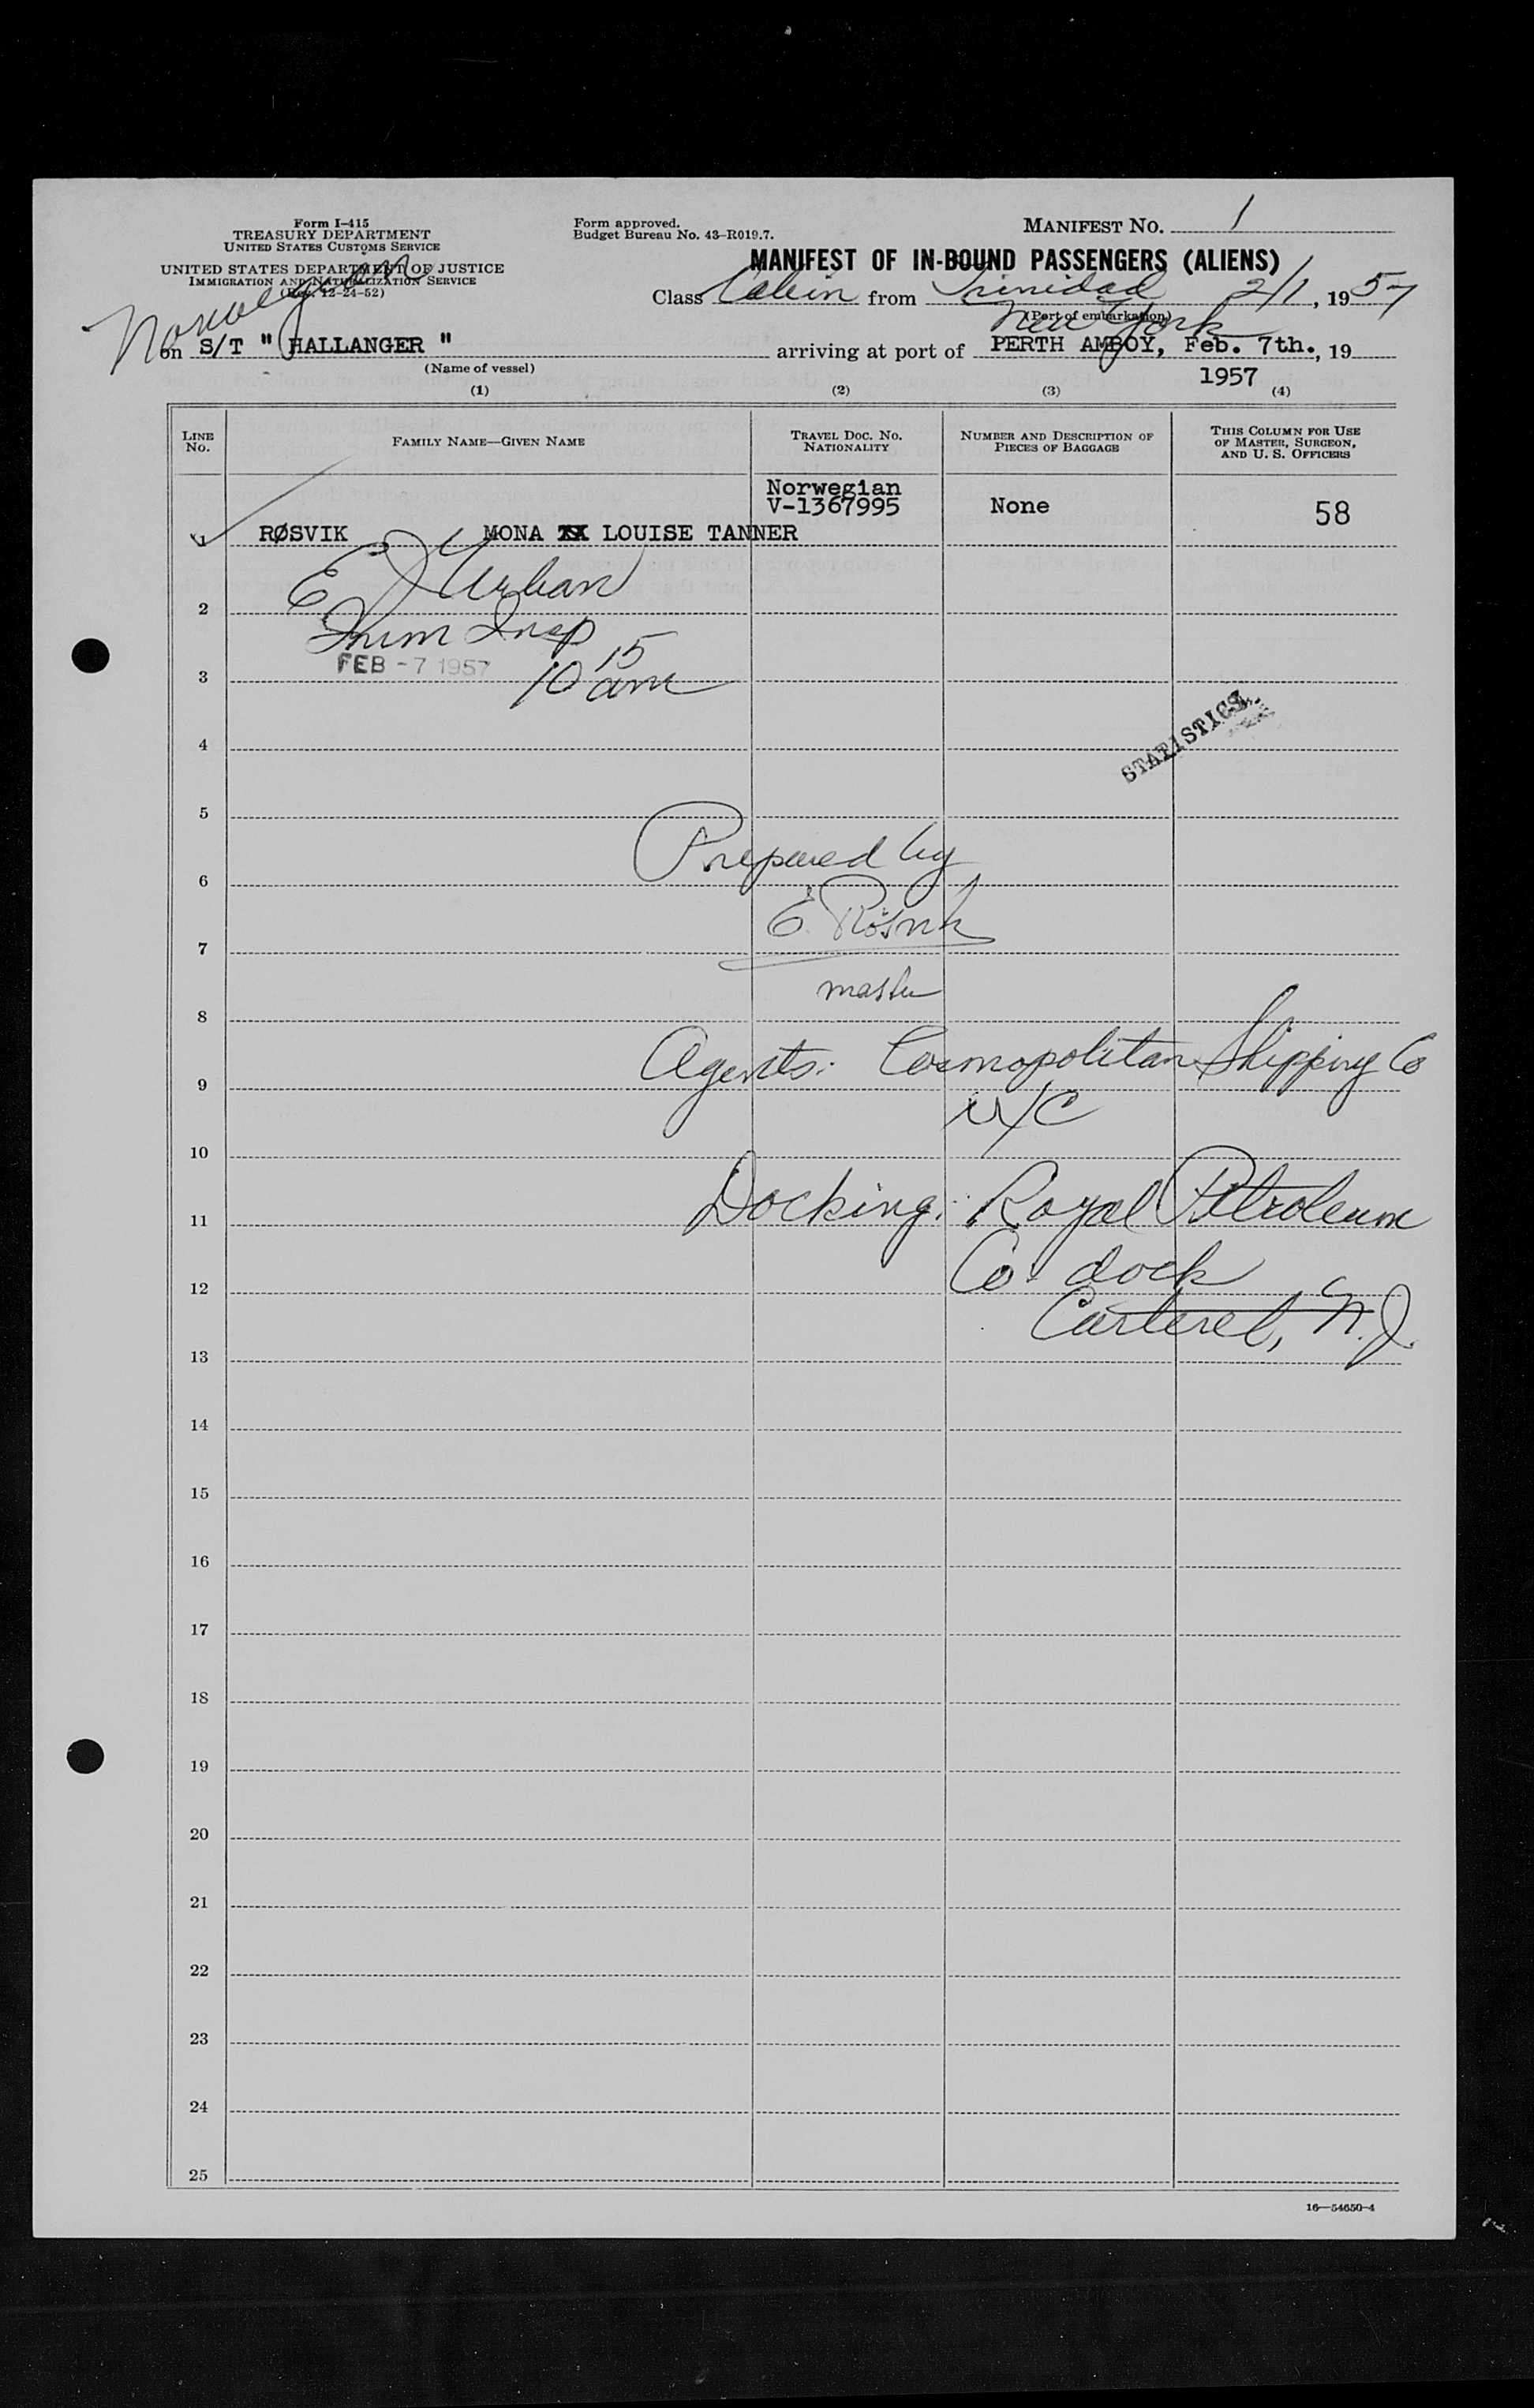 Form I-415
TREASURY DEPARTMENT
UNITED STATES CUSTOMS SERVICE
UNITED STATES DEPARTMENT OF JUSTICE
IMMIGRATION AND NATURALIZATION SERVICE
(Rev. 12-24-52)
Form approved.
Budget Bureau No. 43-R019.7.
MANIFEST NO. 1
MANIFEST OF IN-BOUND PASSENGERS (ALIENS)
Class Cabin from Trinidad 2/1, 1957
(Port of embarkation)
Norwegian
New York
on S/T " HALLANGER " arriving at port of PERTH AMBOY, Feb. 7th., 19
(Name of vessel)
1957
(1) (2) (3) (4)
LINE NO.
FAMILY NAME—GIVEN NAME
TRAVEL DOC. NO. NATIONALITY
NUMBER AND DESCRIPTION OF PIECES OF BAGGAGE
THIS COLUMN FOR USE OF MASTER, SURGEON, AND U. S. OFFICERS
Norwegian
V-1367995 None 58
1 RØSVIK MONA LOUISE TANNER
E J Urban
2
Imm Insp
FEB -7 1957 10 15 am
3
STATISTICS
4
5
Prepared by
6
E. Røsvik
7
master
8
Agents: Cosmopolitan Shipping Co
9
10
Docking: Royal Petroleum
11
Co. dock
12
Carteret, N.J.
13
14
15
16
17
18
19
20
21
22
23
24
25
16—54650-4